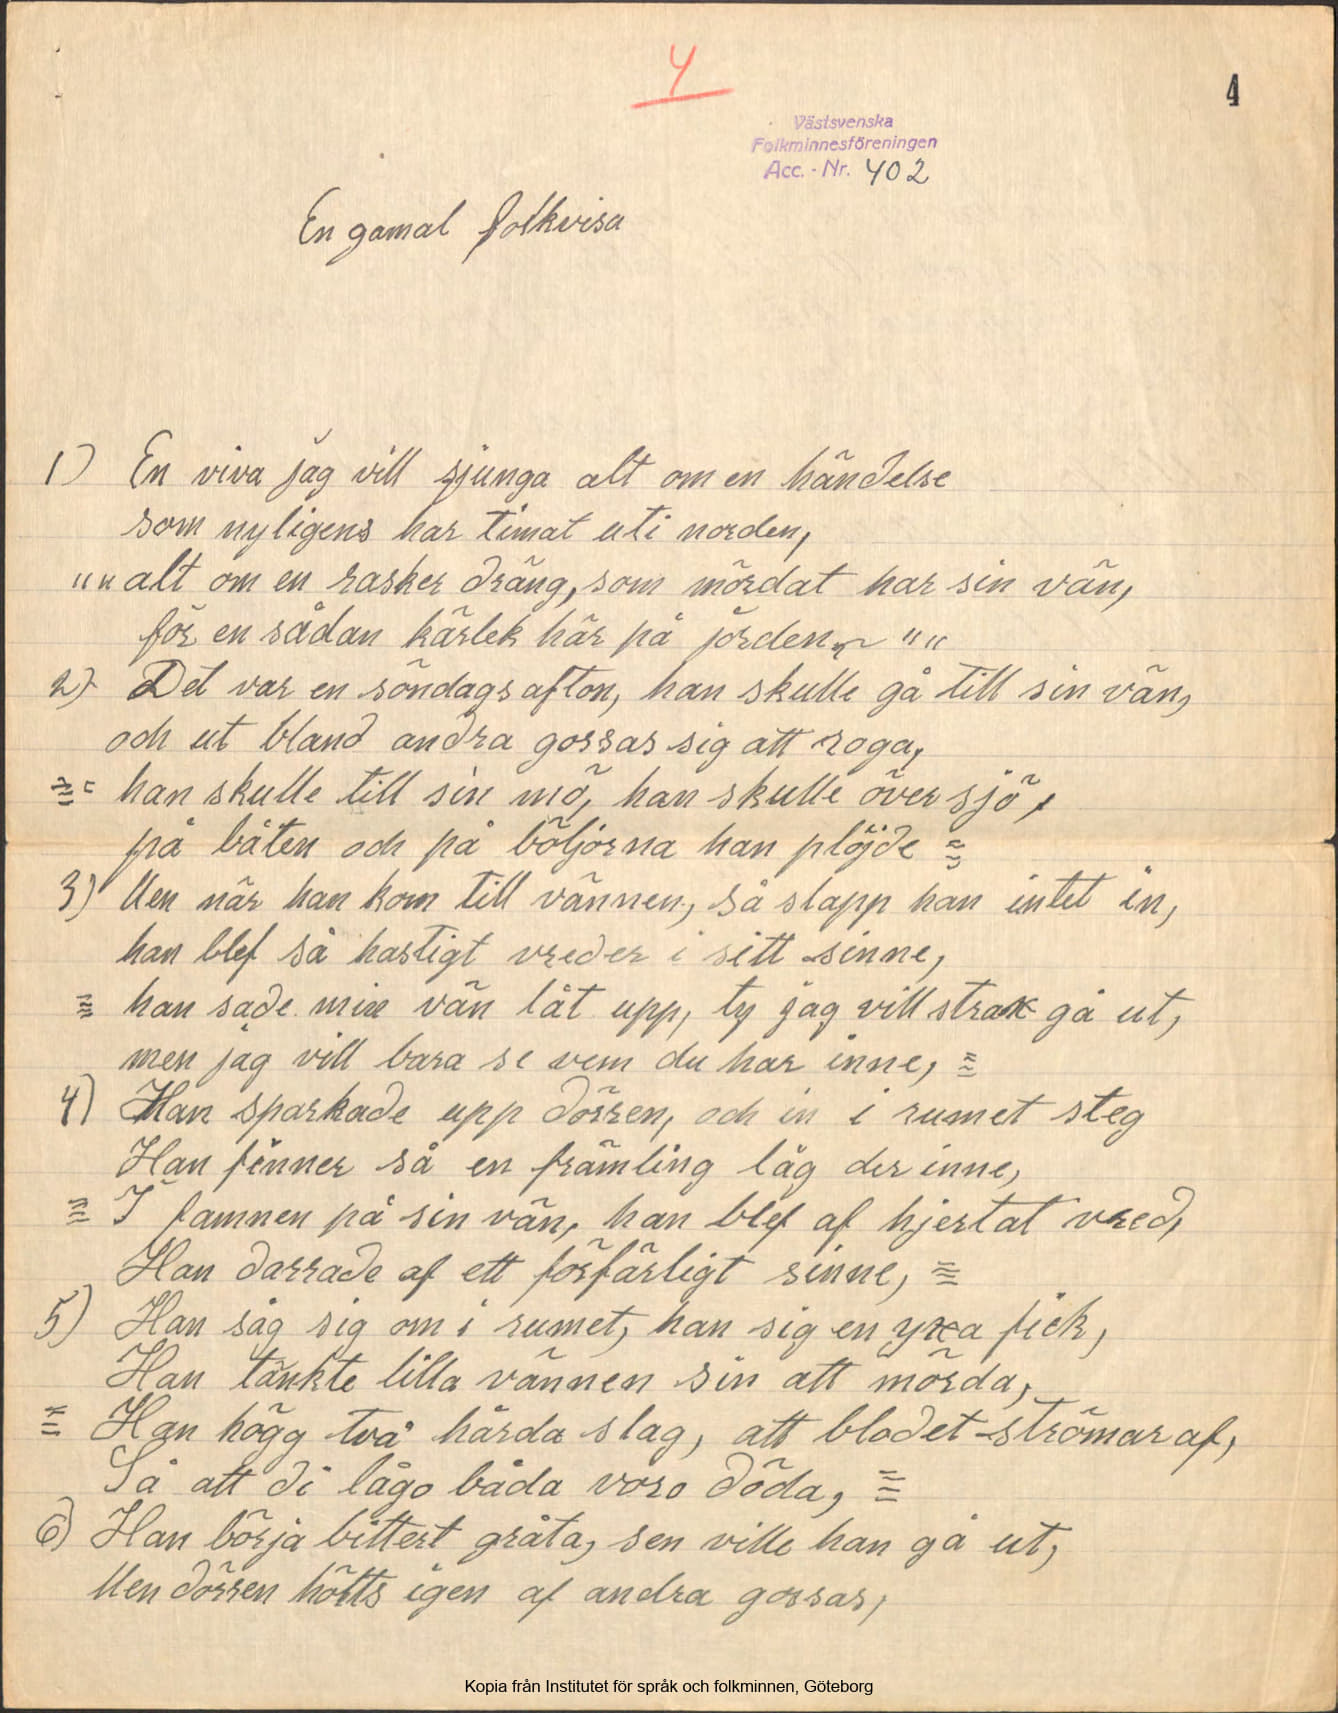 4
4
Västsvenska
Folkminnesföreningen
Acc. - Nr. 402
En gamal folkvisa
1) En viva jag vill sjunga alt om en händelse
som nyligens har timat uti norden,
"" alt om en rasker dräng, som mördat har sin vän,
för en sådan kärlek här på jorden ""
2) Det var en söndagsafton, han skulle gå till sin vän,
och ut bland andra gossar sig att roga,
han skulle till sin mö, han skulle över sjö,
på båten och på böljorna han plöjde
3) Men när han kom till vännen, så slapp han intet in,
han blef så hastigt vreder i sitt sinne,
han sade min vän låt upp, ty jag vill strax gå ut,
men jag vill bara se vem du har inne,
4) Han sparkade upp dörren, och in i rumet steg
Han finner så en främling låg der inne,
I famnen på sin vän, han blef af hjertat vred,
Han darrade af ett förfärligt sinne,
5) Han såg sig om i rumet, han sig en yxa fick,
Han tänkte lilla vännen sin att mörda,
Han högg två hårda slag, att blodet strömar af,
Så att di lågo båda voro döda,
6) Han börja bittert gråta, sen ville han gå ut,
Men dörren hölts igen af andra gossar,
Kopia från Institutet för språk och folkminnen, Göteborg